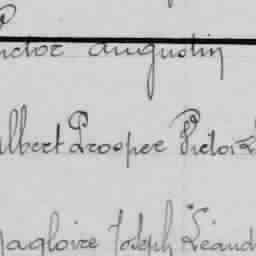 ictor Augustin
Albert Prosper Victor
Magloire Joseph Léand